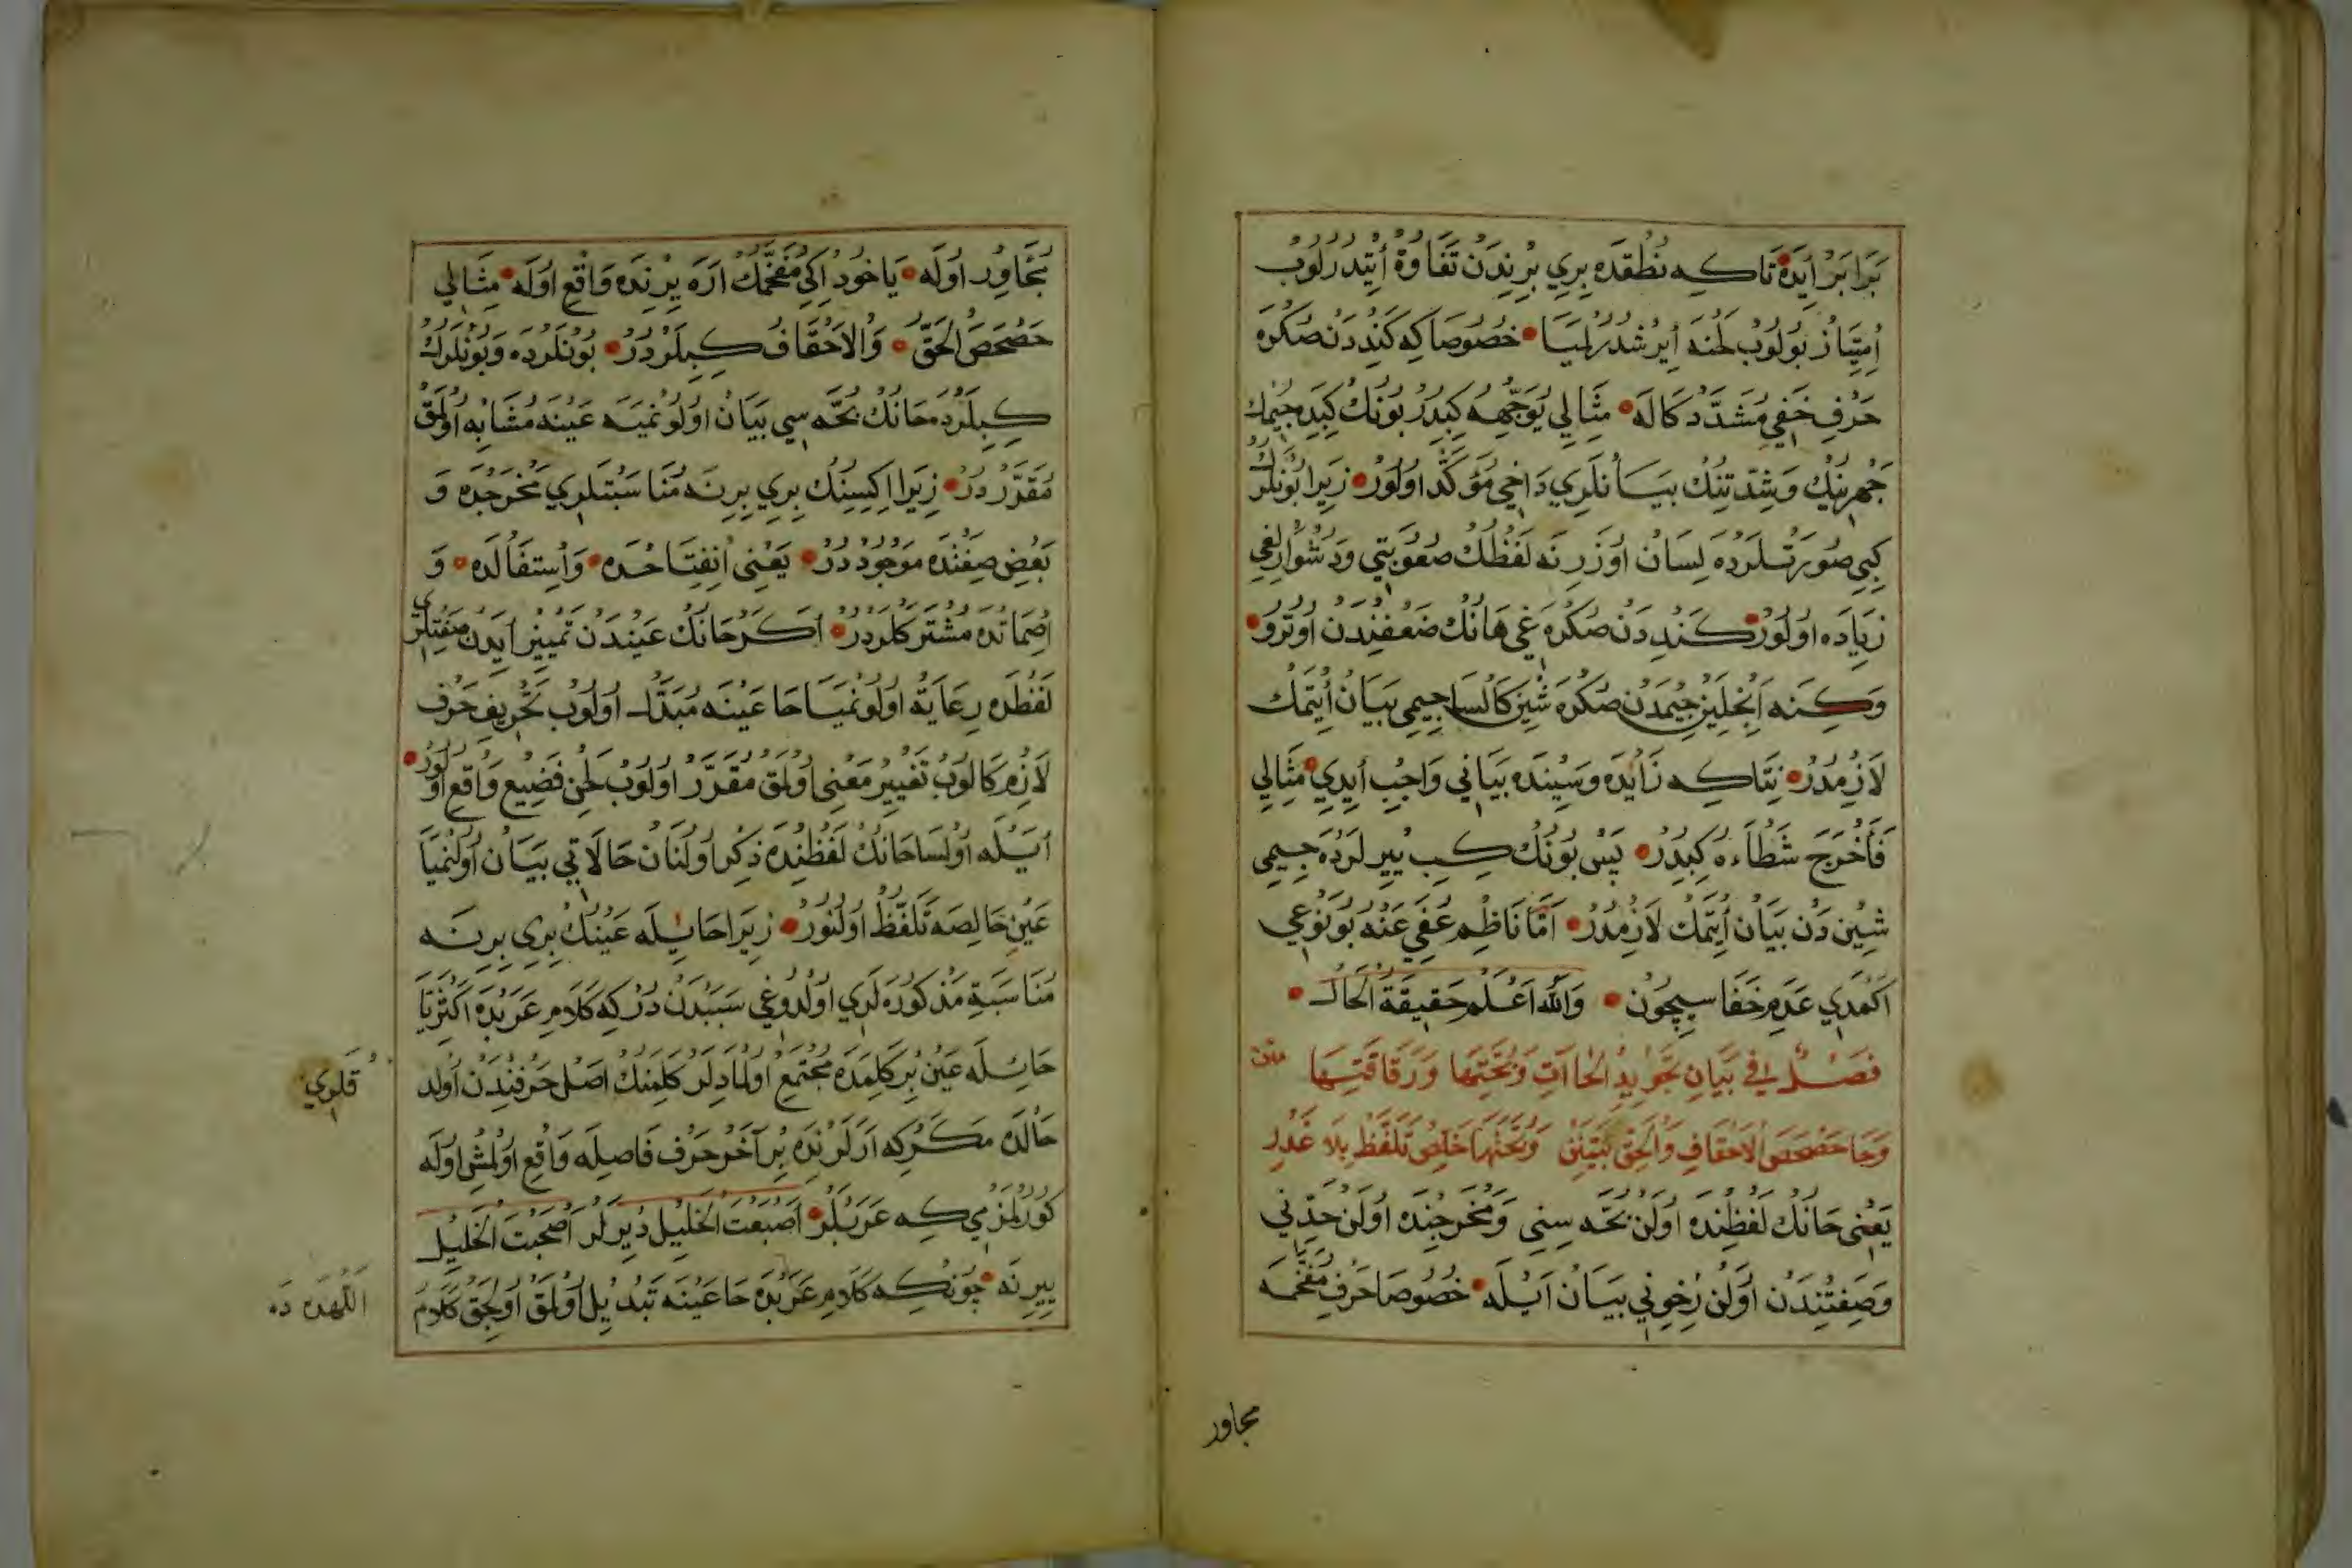 بَرَابَرْ اِيدَه تَاكِه نُطْقَدَه بِرِي بِرِنْدَنْ تَفَاوُةْ اِيتْدِرْلُوبْ
اِمْتِيَازْ بُولُوبْ لَحْنَه اِيرِشْدُرُلْمَيَا خُصُوصَا كِه كَنْدِدَنْ صُكْرَه
حَرْفِ خَفِي مُشَدَّدْ كَالَه مِثَالِي يُوَجِّهْهُ كِبِدُرْ بُونُكْ كِبِيدَه جِيمُكْ
جَهْرِنِيكْ وَشِدَّتِنُكْ بَيَانْلَرِي دَاخِي مُؤَكَّدْ اُولُورْ زِيرَا بُونْلَرُكْ
كِبِي صُورَتْلَرْدَه لِسَانْ اُوزَرِنَه لَفْظُكْ صُعُوبَتِي وَدُشْوَارْلِغِي
زِيَادَه اُولُورْ كَنْدِدَنْ صُكْرَه غِي هَانُكْ ضَعْفِنْدَنْ اُوتُرُو
وَكِنَه اَنْجِلَيِنْ جِيمْدَنْ صُكْرَه شِينْ كَالْسَا جِيمِي بَيَانْ اِيتْمَكْ
لَازِمْدُرْ نِتَاكِه زَايْدَه وَسِينْدَه بَيَانِي وَاجِبْ اِيدِي مِثَالِي
فَأَخْرَجَ شَطْأَهُ كِبِدُرْ پَسْ بُونُكْ كِبِي يِيرْلَرْدَه جِيمِي
شِينْ دَنْ بَيَانْ اِيتْمَكْ لَازِمْدُرْ اَمَّا نَاظِمْ عُفِيَ عَنْهُ بُو نَوْعِي
اَكْمَدِي عَدَمِ خَفَاسِيچُونْ وَاللّٰهُ اَعْلَمُ حَقِيقَةُ الْحَالْ
فَصْلٌ فِي بَيَانِ تَجْوِيدِ الْحَاآتِ وَبُحَّتِهَا وَرَقَاقَتِهَا متن
وَحَا حَصْحَصَ الْاَحْقَافِ وَالْحَقّ بَيِّنَنْ وَبُحَّتَهَا خَلِّصْ تَلَفَّظْ بِلَا غَدْرِ
يَعْنِي حَانُكْ لَفْظِنْدَه اُولَنْ بُحَّه سِنِي وَمَخْرَجِنْدَه اُولَنْ حَدِّنِي
وَصِفَتِنْدَنْ اُولَنْ رِخْوِنِي بَيَانْ اَيْلَه خُصُوصَا حَرْفِ مُفَخَّمَه
مجاور
مُجَاوِرْ اُولَه يَاخُودْ اِكِي مُفَخَّمُكْ اَرَه يِرِنْدَه وَاقِعْ اُولَه مِثَالِي
حَصْحَصَ الْحَقُّ وَالْاَحْقَافُ كِبِلَرْدُرْ بُونْلَرْدَه وَبُونْلَرُكْ
كِبِلَرْدَه حَانُكْ بُحَّه سِي بَيَانْ اُولُونْمَيَه عَيْنَه مُشَابِه اُولْمَقْ
مُقَرَّرْدُرْ زِيرَا اِكِيسِنُكْ بِرِي بِرِنَه مُنَاسَبَتْلَرِي مَخْرَجْدَه وَ
بَعْضِ صِفَتْدَه مَوْجُودْدُرْ يَعْنِي اِنْفِتَاحْدَه وَاسْتِفَالْدَه وَ
اِصْمَاتْدَه مُشْتَرَكْلَرْدُرْ اَكَرْ حَانُكْ عَيْنْدَنْ تَمْيِيزْ اِيدَنْ صِفَتْلَرِي
لَفْظْدَه رِعَايَةْ اُولُونْمَيَا حَا عَيْنَه مُبَدَّلْ اُولُوبْ تَحْرِيفِ حَرْف
لَازِمْ كَالُوبْ تَغْيِيرِ مَعْنِي اُولْمَقْ مُقَرَّرْ اُولُوبْ لَحْنِ فَضِيعْ وَاقِعْ اُولُورْ
اَيْلَه اُولْسَا حَانُكْ لَفْظِنْدَه ذِكْر اُولْنَانْ حَالَاتِي بَيَانْ اُولُنْمَيَا
عَيْنِ خَالِصَه تَلَفُّظْ اُولْنُورْ زِيرَا حَا يِلَه عَيْنُكْ بِرِي بِرِنَه
مُنَاسَبَةِ مَذْكُورَه لَرِي اُولْدُوغِي سَبَبْدَنْ دُرْ كِه كَلَامِ عَرَبْدَه اَكْثَرِيَّا
حَا يِلَه عَيْنْ بِرْ كَلِمَدَه مُجْتَمِعْ اُولْمَادِلَرْ كَلِمَنُكْ اَصْلِ حَرْفِنْدَنْ اُولْدُ
قلري
حَالْدَه مَكَرْ كِه اَرَلَرِنْدَه بِرْ آخَرْ حَرْف فَاصِلَه وَاقِعْ اُولْمِشْ اُولَه
كُورْلَمَزْمِي كِه عَرَبْلَرْ اَصْبَعَتْ الْخَلِيلْ دِيرْلَرْ اَصْبَحَتْ الْخَلِيلْ
يِيرِنَه چُونْكِه كَلَامِ عَرَبْدَه حَا عَيْنَه تَبْدِيلْ اُولْمَقْ اُولِجَقْ كَلَامُ
اللهده ده